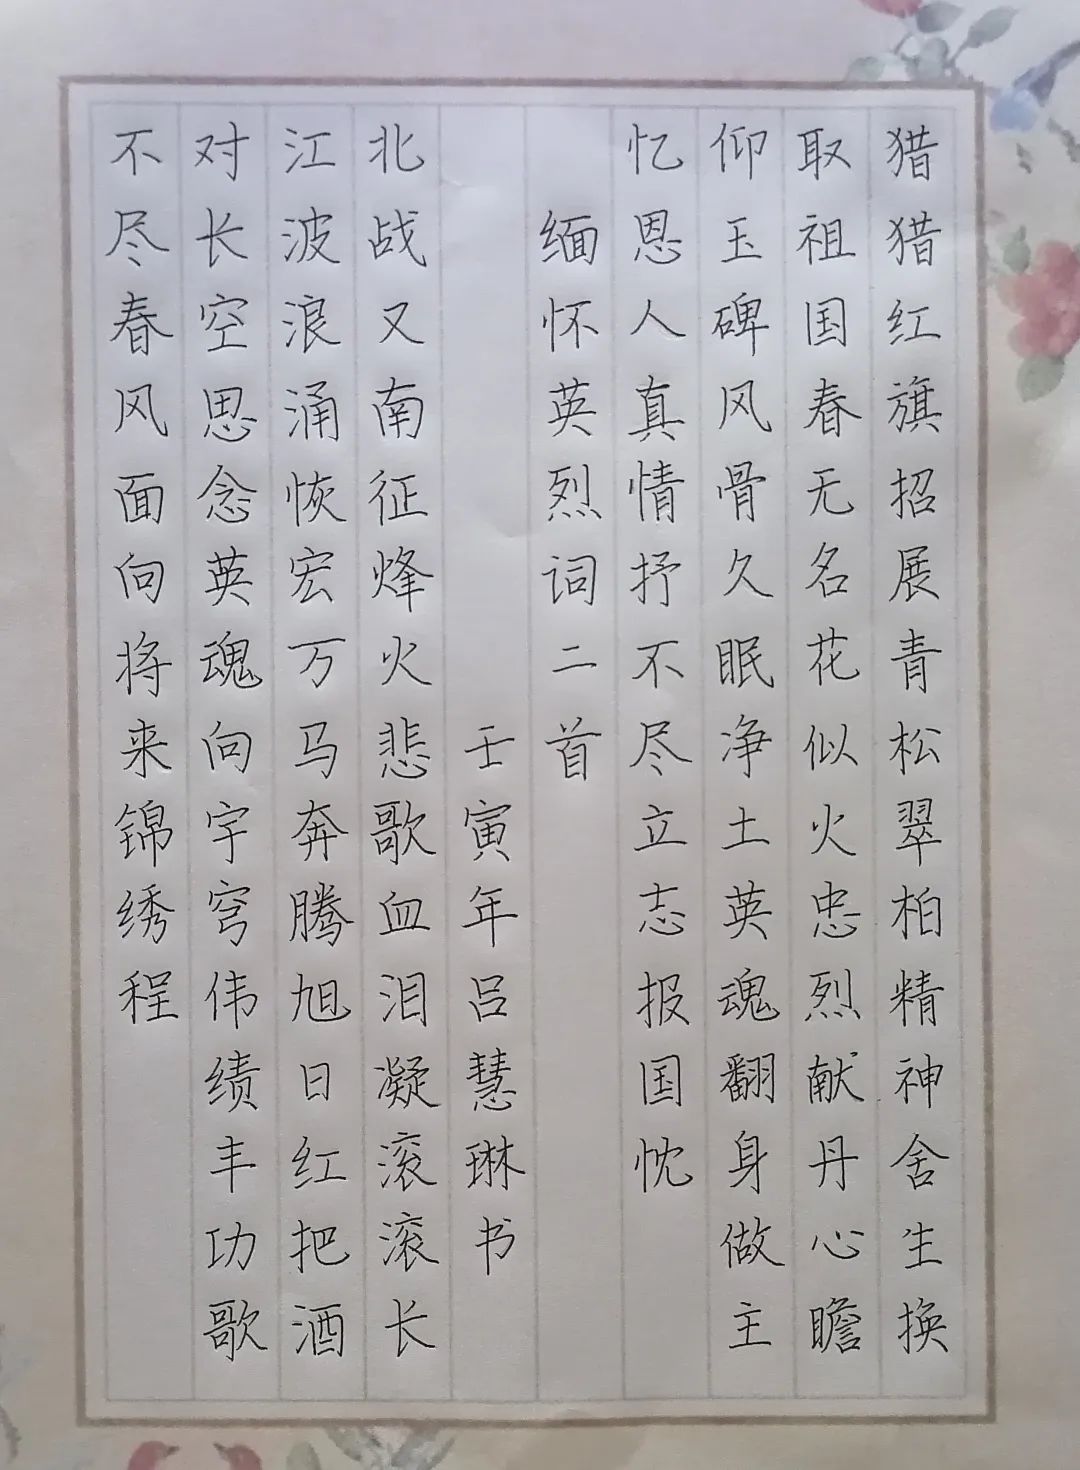 猎猎红旗招展青松翠柏精神舍生换
取祖国春无名花似火忠烈献丹心瞻
仰玉碑风骨久眠净土英魂翻身做主
忆恩人真情抒不尽立志报国忱
缅怀英烈词二首
壬寅年吕慧琳书
北战又南征烽火悲歌血泪凝滚滚长
江波浪涌恢宏万马奔腾旭日红把酒
对长空思念英魂向宇穹伟绩丰功歌
不尽春风面向将来锦绣程